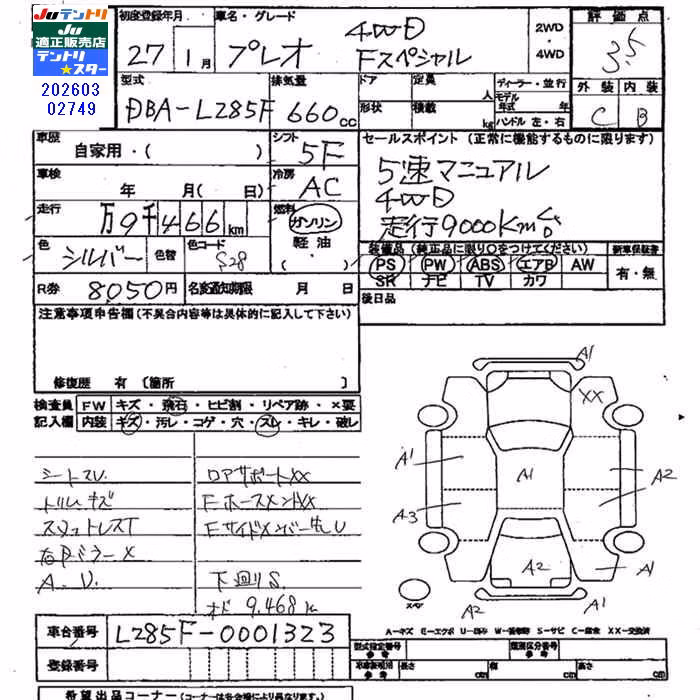 Juテントリ
Ju
適正販売店
テントリ
★スター
202603
02749
初度登録年月
27 1月
車名・グレード
プレオ
4WD
Fスペシャル
2WD・4WD
評価点
3.5
外装 内装
C B
型式
DBA-L285F
排気量
660cc
ドア
形状
定員 人
積載 kg
ディーラー・並行
モデル年式 年
ハンドル 左・右
車歴
自家用・( )
シフト
5F
車検
年 月( 日)
冷房
AC
走行
万9千466km
燃料
ガソリン
軽油
・( )
色
シルバー
色替
色コード
S28
R券 8050円
名変通知期限 月 日
セールスポイント(正常に機能するものに限ります)
5速マニュアル
4WD
走行9000Km
装備品(純正品に限り○をつけてください)
新車保証書
PS PW ABS エアB AW
SR ナビ TV カワ
有・無
後日品
注意事項申告欄(不具合内容等は具体的に記入して下さい)
修復歴 有 〔箇所 〕
検査員記入欄
FW キズ・飛石・ヒビ割・リペア跡・×要
内装 キズ・汚レ・コゲ・穴・スレ・キレ・破レ
シートスレ
トリムキズ
右ドアミラーX
ロアサポートXX
下廻りS.
オド 9.468k
A1
XX
A1
A1
A2
A3
A2
A1
A2
A1
スペア
A-キズ E-エクボ U-凹み W-補修跡 S-サビ C-腐食 XX-交換済
車台番号 L285F-0001323
登録番号
型式指定番号 参考
類別区分番号 参考
長さ cm
幅 cm
高さ cm
希望出品コーナー(コーナーは各会場により異なります。)